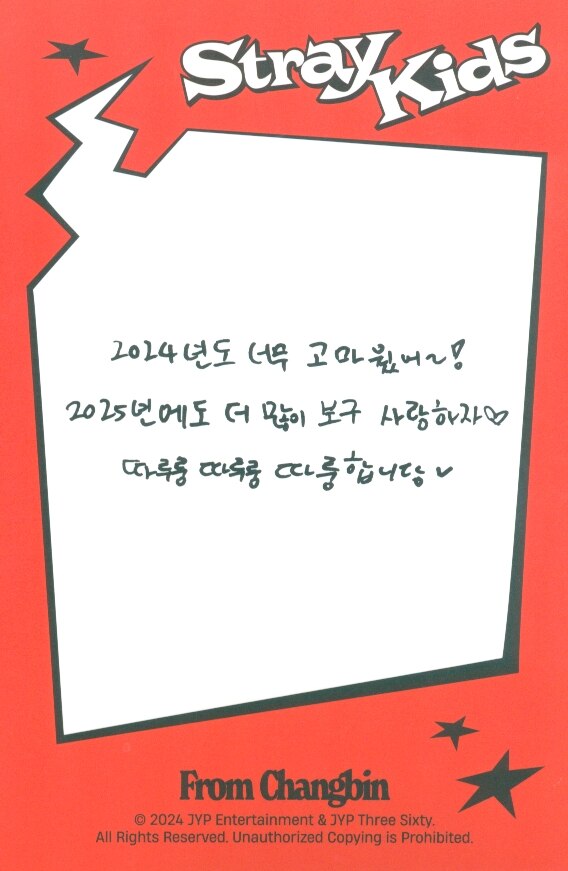 Stray Kids
2024년도 너무 고마웠어~!
2025년에도 더 많이 보구 사랑하자♡
따루룽 따루룽 따룽합니당
From Changbin
© 2024 JYP Entertainment & JYP Three Sixty.
All Rights Reserved. Unauthorized Copying is Prohibited.